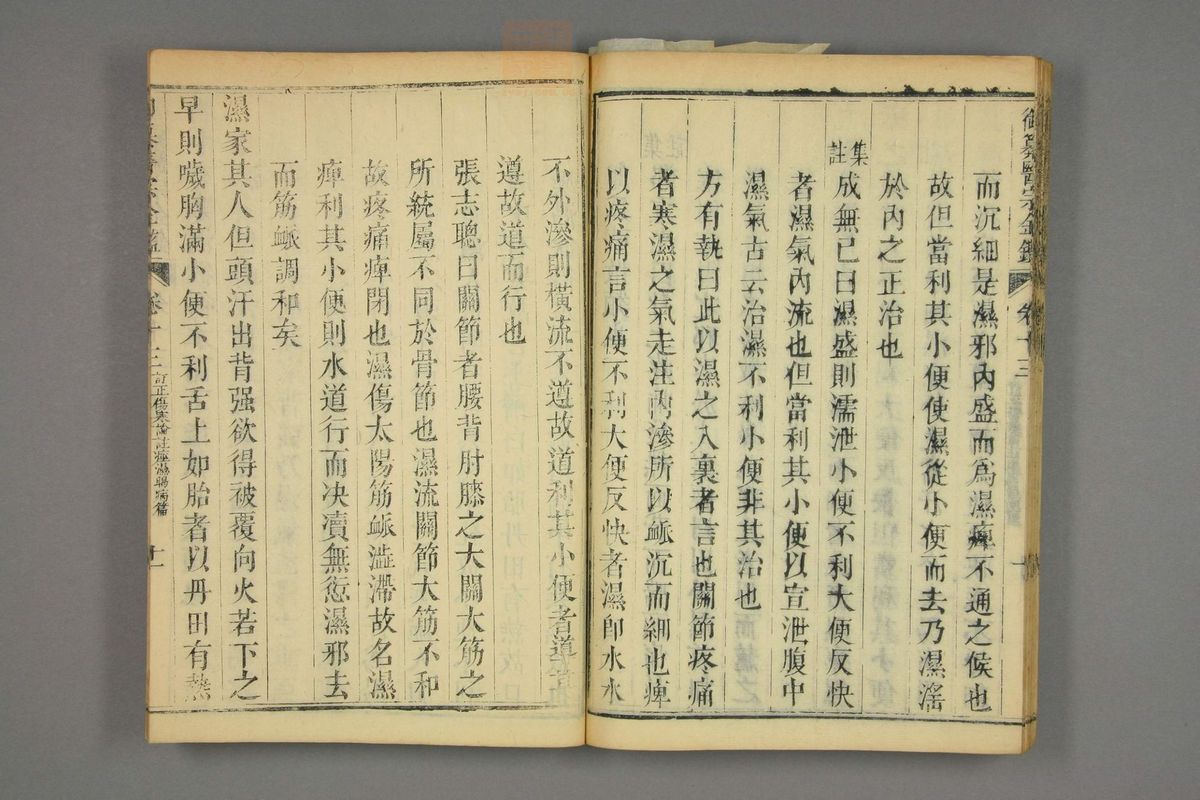 御纂醫宗金鑑 卷十三 十
而沉細是濕邪內盛而爲濕痺不通之候也
故但當利其小便使濕從小便而去乃濕淫
於內之正治也
集註
成無已曰濕盛則濡泄小便不利大便反快
者濕氣內流也但當利其小便以宣泄腹中
濕氣古云治濕不利小便非其治也
方有執曰此以濕之入裏者言也關節疼痛
者寒濕之氣走注內滲所以脈沉而細也痺
以疼痛言小便不利大便反快者濕卽水水
不外滲則橫流不遵故道利其小便者道之
遵故道而行也
張志聰曰關節者腰背肘膝之大關大筋之
所統屬不同於骨節也濕流關節大筋不和
故疼痛痺閉也濕傷太陽筋脈澁滯故名濕
痺利其小便則水道行而决瀆無愆濕邪去
而筋脈調和矣
濕家其人但頭汗出背强欲得被覆向火若下之
早則噦胸滿小便不利舌上如胎者以丹田有熱
卷十三 訂正傷寒論註痙濕暍病篇 十一